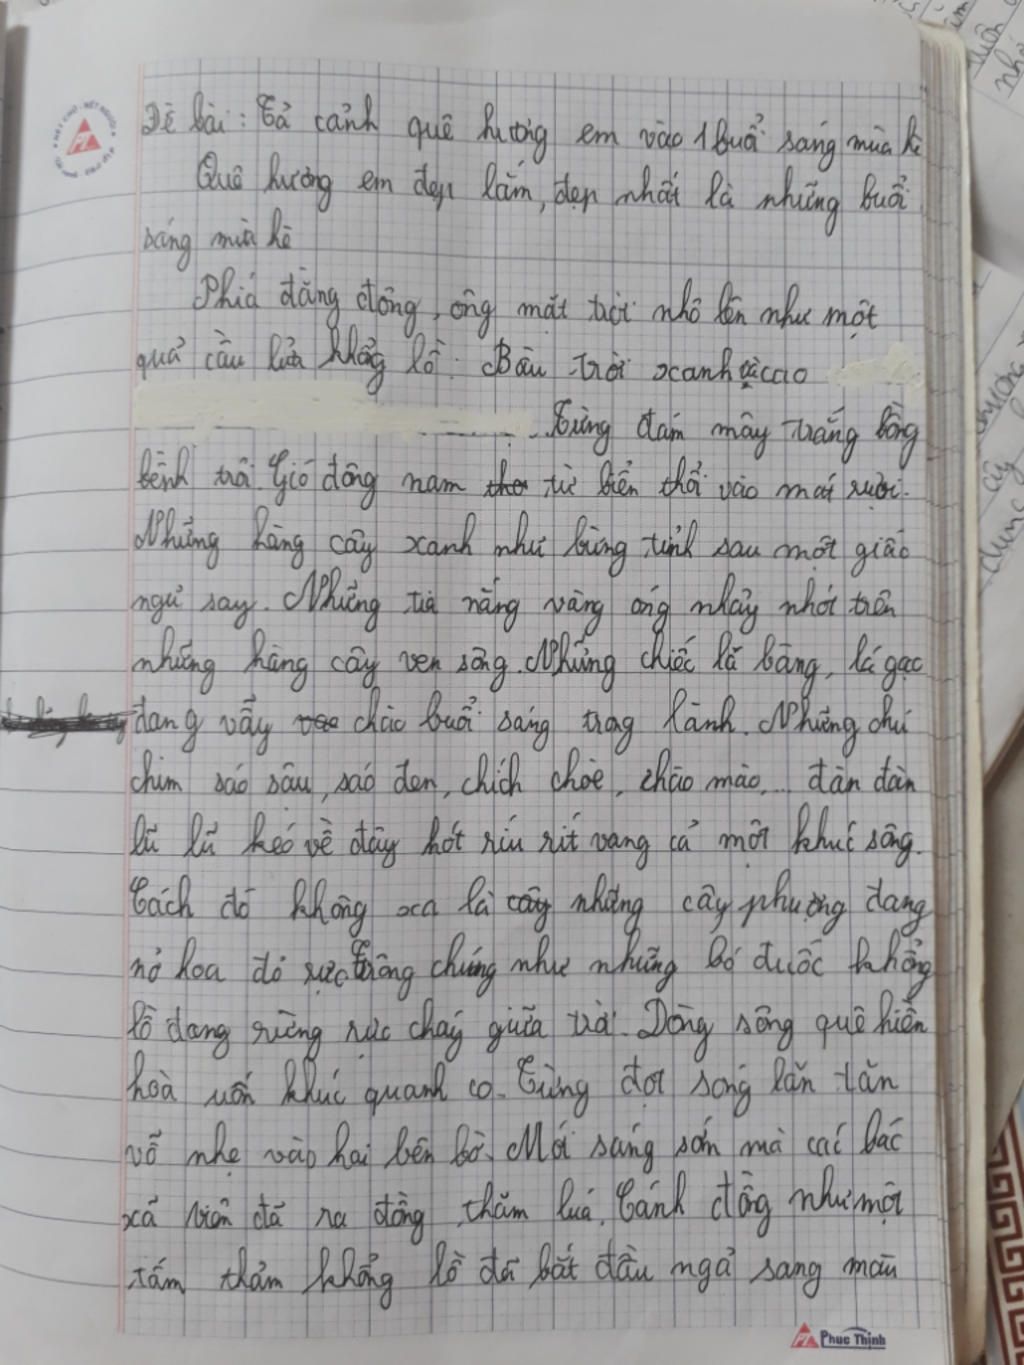 Đề bài: Tả cảnh quê hương em vào 1 buổi sáng mùa hè
Quê hương em đẹp lắm, đẹp nhất là những buổi
sáng mùa hè
Phiá đằng đông, ông mặt trời nhô lên như một
quả cầu lửa khổng lồ. Bầu trời xanh và cao
Từng đám mây trắng bồng
bềnh trôi. Gió đông nam từ biển thổi vào mát rượi.
Những hàng cây xanh như bừng tỉnh sau một giấc
ngủ say. Những tia nắng vàng óng nhảy nhót trên
những hàng cây ven sông. Những chiếc lá bàng, lá gạo
đang vẫy chào buổi sáng trong lành. Những chú
chim sáo sậu, sáo đen, chích chòe, chào mào,... đàn đàn
lũ lũ kéo về đây hót ríu rít vang cả một khúc sông.
Cách đó không xa là những cây phượng đang
nở hoa đỏ rực. Trông chúng như những bó đuốc khổng
lồ đang rừng rực cháy giữa trời. Dòng sông quê hiền
hoà uốn khúc quanh co. Từng đợt sóng lăn tăn
vỗ nhẹ vào hai bên bờ. Mới sáng sớm mà các bác
xã viên đã ra đồng thăm luá. Cánh đồng như một
tấm thảm khổng lồ đã bắt đầu ngả sang màu
Phuc Thinh